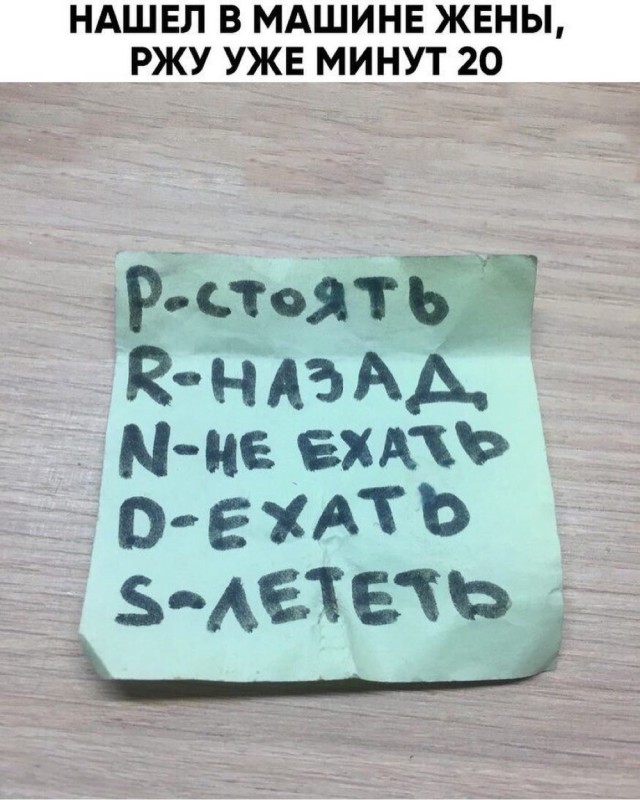 НАШЕЛ В МАШИНЕ ЖЕНЫ,
РЖУ УЖЕ МИНУТ 20
P-СТОЯТЬ
R-НАЗАД
N-НЕ ЕХАТЬ
D-ЕХАТЬ
S-ЛЕТЕТЬ